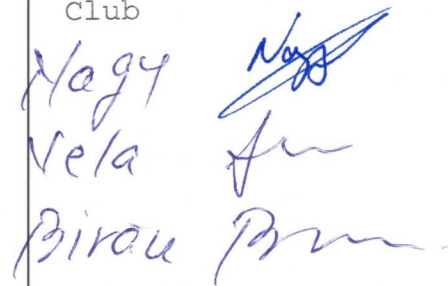 Club
Nagy Nagy
Vela
Birau